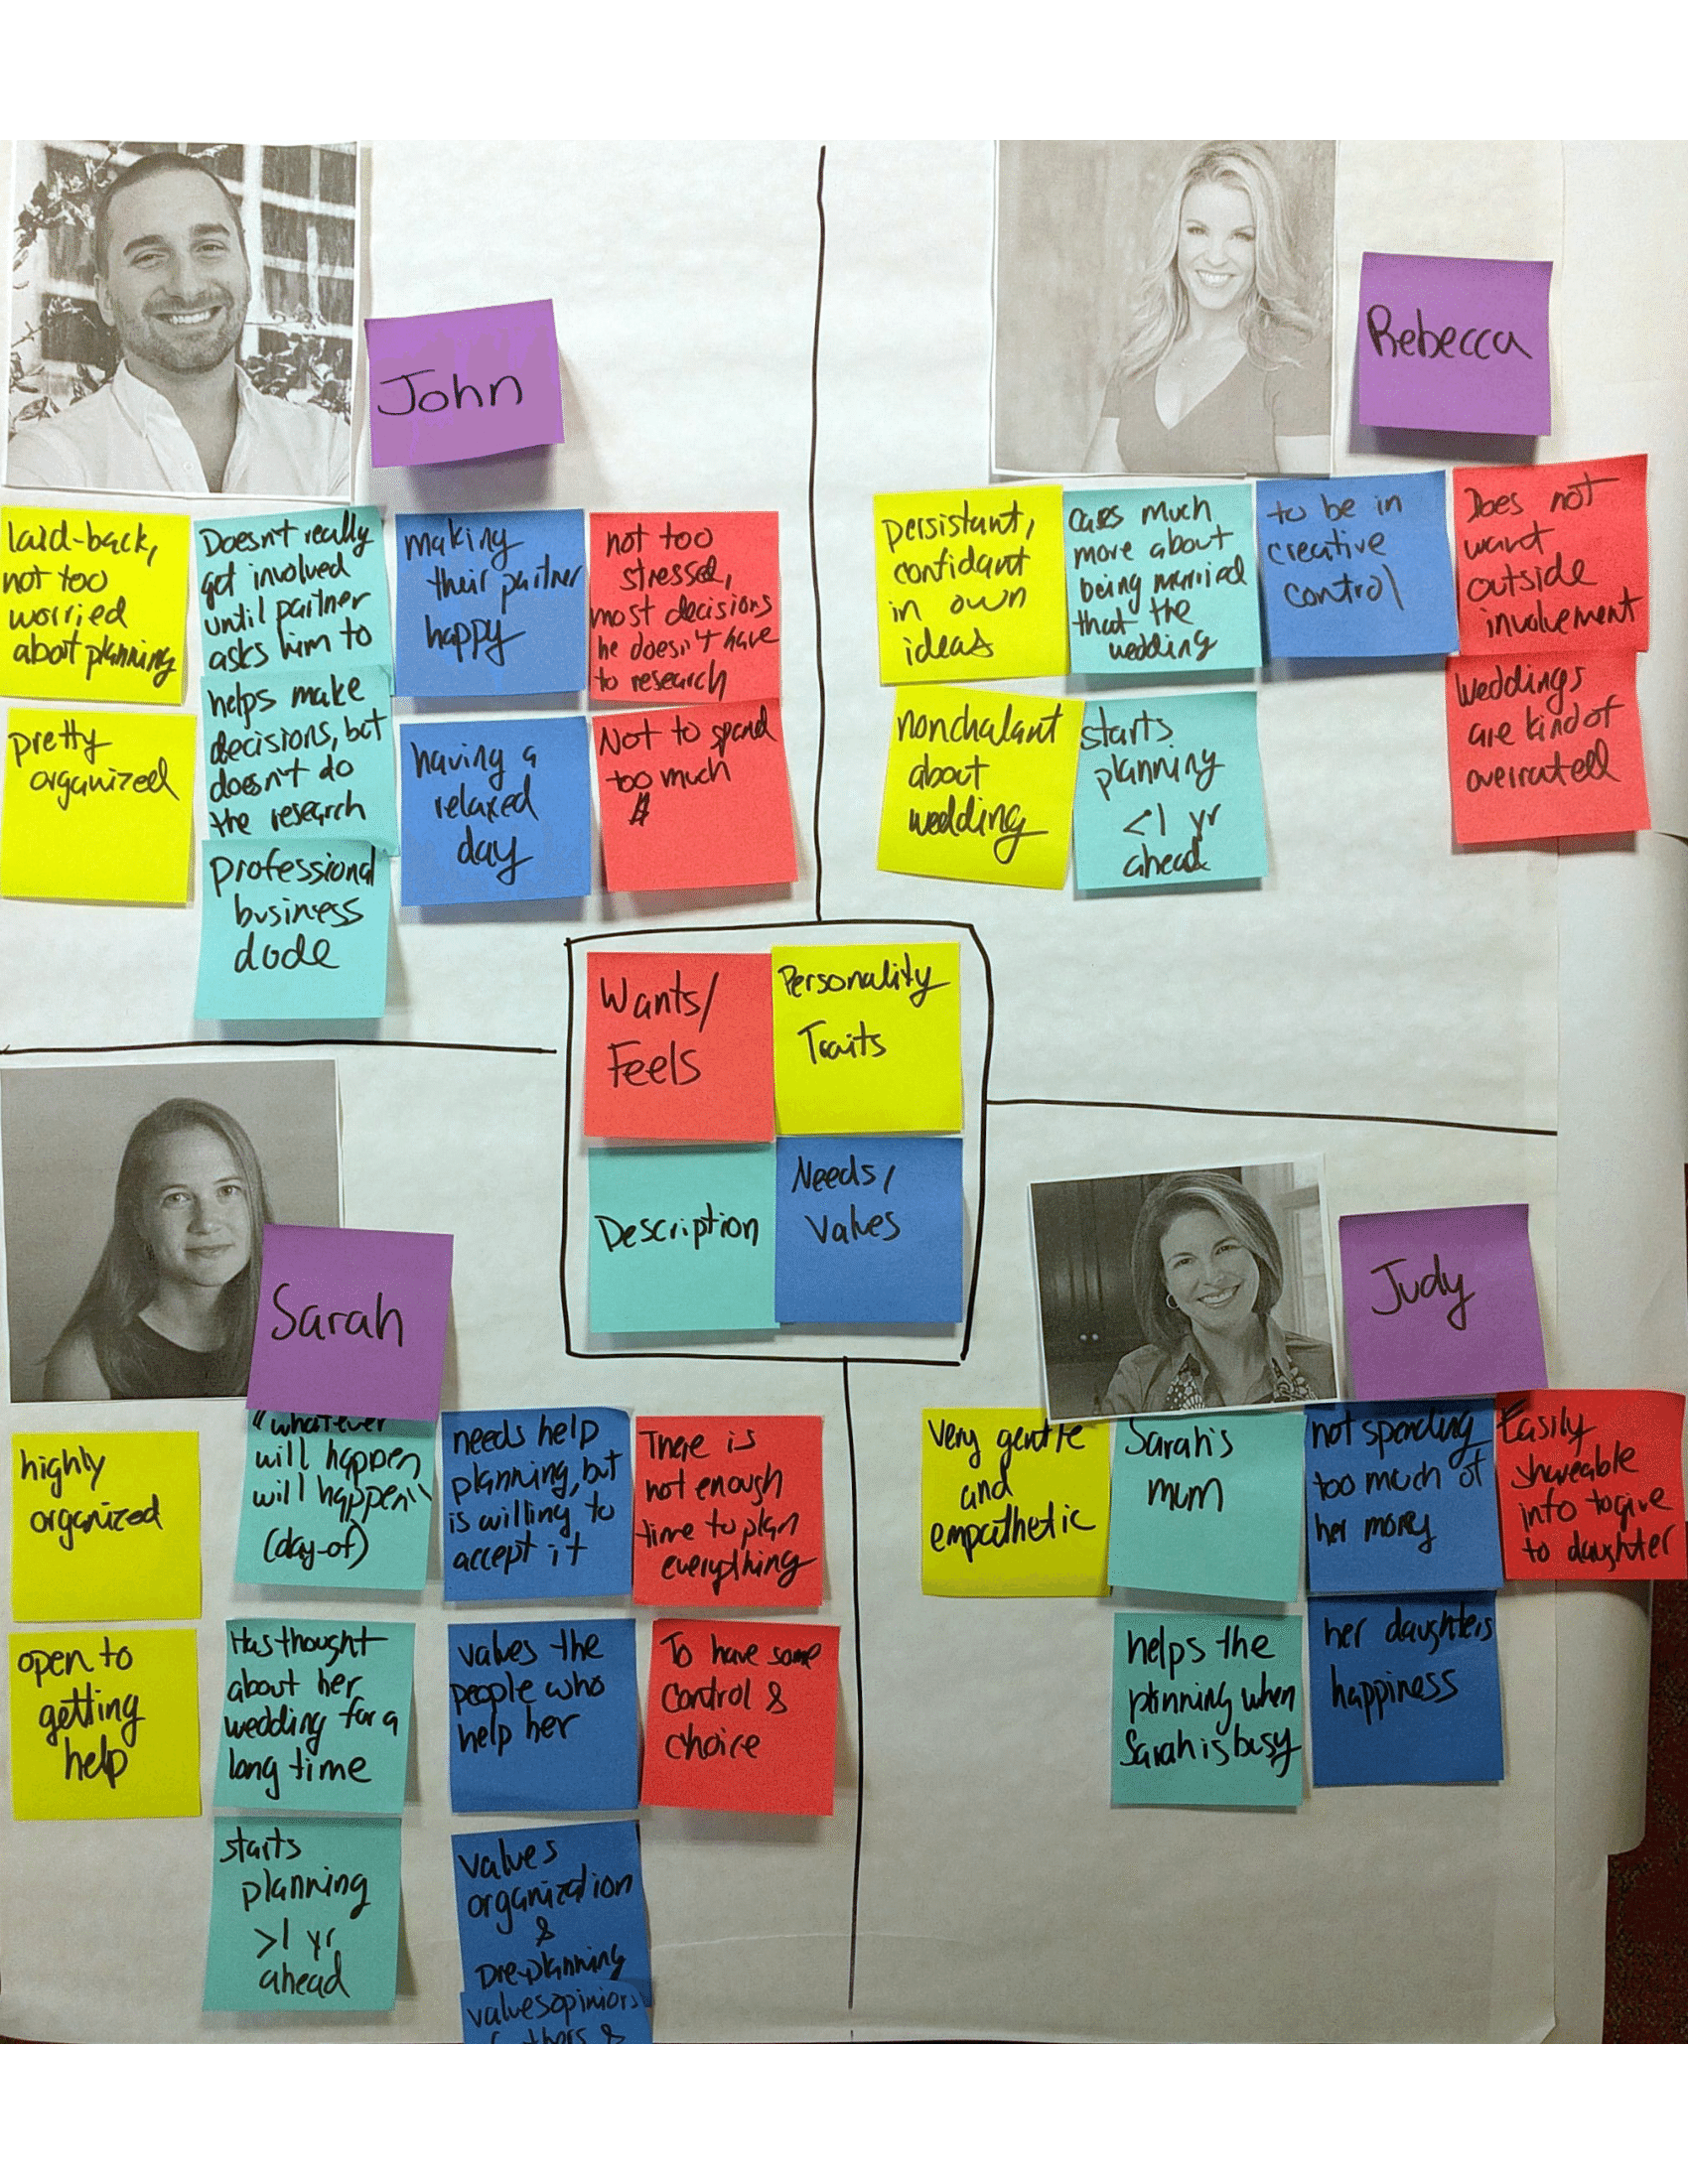 John
laid-back,
not too
worried
about planning
pretty
organized
Doesn't really
get involved
until partner
asks him to
helps make
decisions, but
doesn't do
the research
professional
business
dude
making
their partner
happy
having a
relaxed
day
not too
stressed,
most decisions
he doesn't have
to research
Not to spend
too much
$
Rebecca
persistant,
confidant
in own
ideas
nonchalant
about
wedding
cares much
more about
being married
that the
wedding
starts
planning
<1 yr
ahead
to be in
creative
control
Does not
want
outside
involvement
Weddings
are kind of
overrated
Wants/
Feels
Personality
Traits
Description
Needs/
Values
Sarah
highly
organized
open to
getting
help
"whatever
will happen
will happen"
(day-of)
Has thought
about her
wedding for a
long time
starts
planning
>1 yr
ahead
needs help
planning, but
is willing to
accept it
values the
people who
help her
values
organization
&
pre-planning
values opinions
of others &
There is
not enough
time to plan
everything
To have some
control &
choice
Judy
Very gentle
and
empathetic
Sarah's
mum
helps the
planning when
Sarah is busy
not spending
too much of
her money
her daughter's
happiness
Easily
shareable
info to give
to daughter